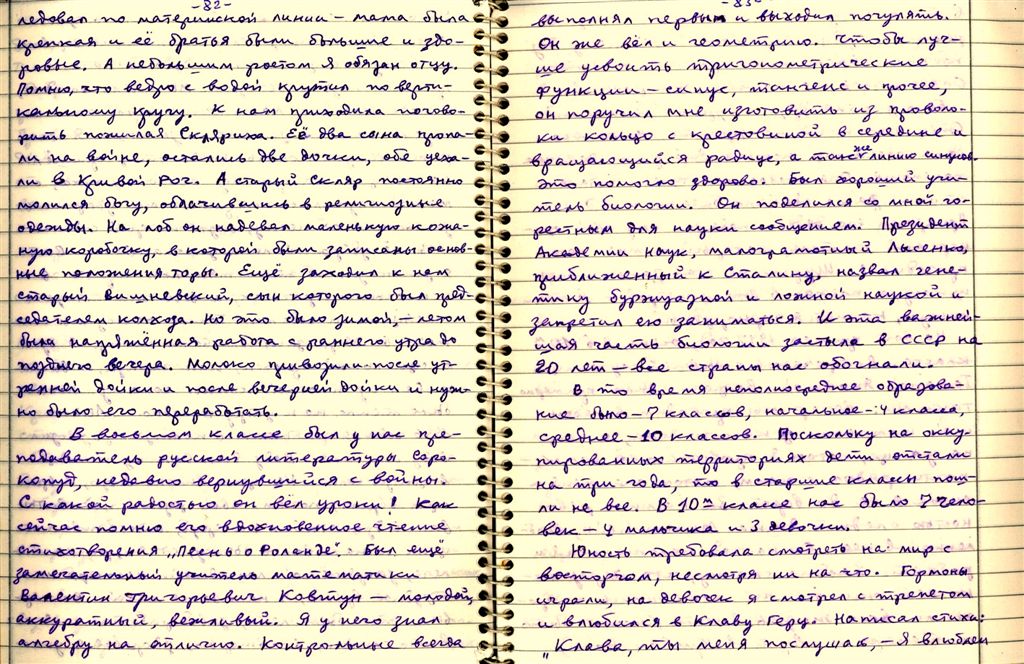 -82-
ледовал по материнской линии – мама была
крепкая и её братья были большие и здо-
ровые. А небольшим ростом я обязан отцу.
Помню, что ведро с водой крутил по верти-
кальному кругу. К нам приходила погово-
рить пожилая Скляриха. Её два сына пропа-
ли на войне, остались две дочки, обе уеха-
ли в Кривой Рог. А старый Скляр постоянно
молился богу, облачившись в религиозные
одежды. На лоб он надевал маленькую кожа-
ную коробочку, в которой были записаны основ-
ные положения торы. Ещё заходил к нем
старый Вишневский, сын которого был пред-
седателем колхоза. Но это было зимой, – летом
была напряжённая работа с раннего утра до
позднего вечера. Молоко привозили после ут-
ренней дойки и после вечерней дойки и нуж-
но было его переработать.
В восьмом классе был у нас пре-
подаватель русской литературы Соро-
копуд, недавно вернувшийся с войны.
С какой радостью он вёл уроки! Как
сейчас помню его вдохновенное чтение
стихотворения „Песнь о Роланде". Был ещё
замечательный учитель математики
Валентин Григорьевич Ковтун – молодой,
аккуратный, вежливый. Я у него знал
алгебру на отлично. Контрольные всегда
-83-
выполнял первым и выходил погулять.
Он же вёл и геометрию. Чтобы луч-
ше усвоить тригонометрические
функции – синус, тангенс и прочее,
он поручил мне изготовить из проволо-
ки кольцо с крестовиной в середине и
вращающийся радиус, а также линию синусов.
Это помогло здорово. Был хороший учи-
тель биологии. Он поделился со мной го-
рестным для науки сообщением. Президент
Академии наук, малограмотный Лысенко,
приближенный к Сталину, назвал гене-
тику буржуазной и ложной наукой и
запретил ею заниматься. И эта важней-
шая часть биологии застыла в СССР на
20 лет – все страны нас обогнали.
В то время неполносреднее образова-
ние было – 7 классов, начальное – 4 класса,
среднее – 10 классов. Поскольку на окку-
пированных территориях дети отстали
на три года, то в старшие классы пош-
ли не все. В 10м классе нас было 7 чело-
век – 4 мальчика и 3 девочки.
Юность требовала смотреть на мир с
восторгом, несмотря ни на что. Гормоны
играли, на девочек я смотрел с трепетом
и влюбился в Клаву Герц. Написал стихи:
„Клава, ты меня послушай, – Я влюблен